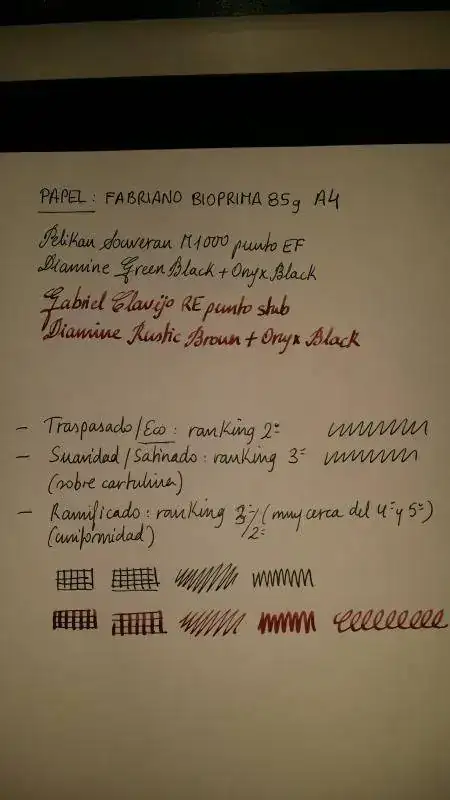 PAPEL: FABRIANO BIOPRIMA 85g A4
Pelikan Souveran M1000 punto EF
Diamine Green Black + Onyx Black
Gabriel Clavijo RE punto stub
Diamine Rustic Brown + Onyx Black
- Traspasado/Eco: ranking 2º
- Suavidad/Satinado: ranking 3º
(sobre cartulina)
- Ramificado: ranking 3º/2º (muy cerca del 4º y 5º)
(uniformidad)